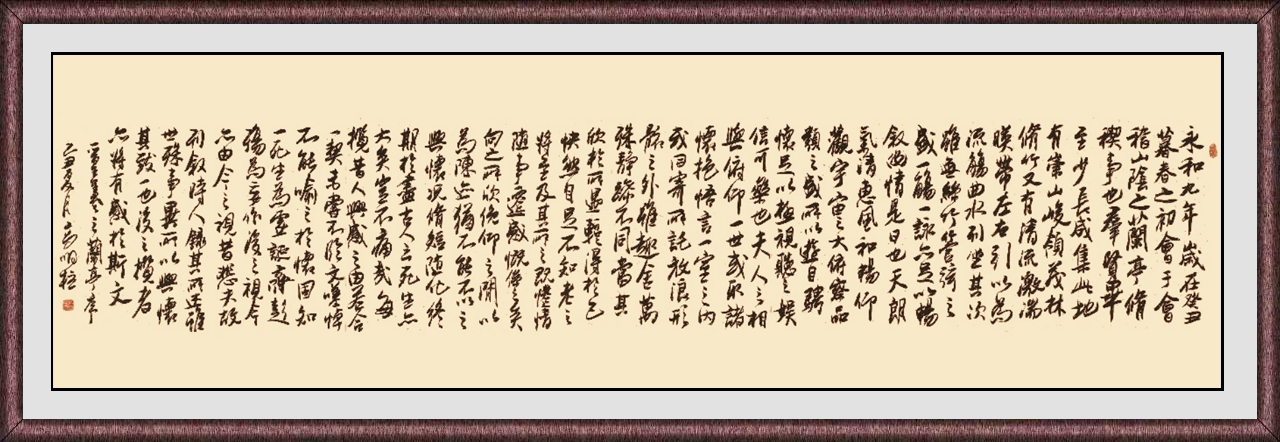 永和九年歲在癸丑
暮春之初會于會
稽山陰之蘭亭脩
禊事也群賢畢
至少長咸集此地
有崇山峻領茂林
脩竹又有清流激湍
暎帶左右引以為
流觴曲水列坐其次
雖無絲竹管弦之
盛一觴一詠亦足以暢
敘幽情是日也天朗
氣清惠風和暢仰
觀宇宙之大俯察品
類之盛所以遊目騁
懷足以極視聽之娛
信可樂也夫人之相
與俯仰一世或取諸
懷抱悟言一室之內
或因寄所託放浪形
骸之外雖趣舍萬
殊靜躁不同當其
欣於所遇輒得於己
怏然自足不知老之
將至及其所之既惓情
隨事遷感慨係之矣
向之所欣俛仰之間以
為陳迹猶不能不以之
興懷況脩短隨化終
期於盡古人云死生亦
大矣豈不痛哉每
攬昔人興感之由若合
一契未嘗不臨文嗟悼
不能喻之於懷固知
一死生為虛誕齊彭
殤為妄作後之視今
亦由今之視昔悲夫故
列敘時人錄其所述雖
世殊事異所以興懷
其致一也後之攬者
亦將有感於斯文
王羲之蘭亭序
己丑夏月